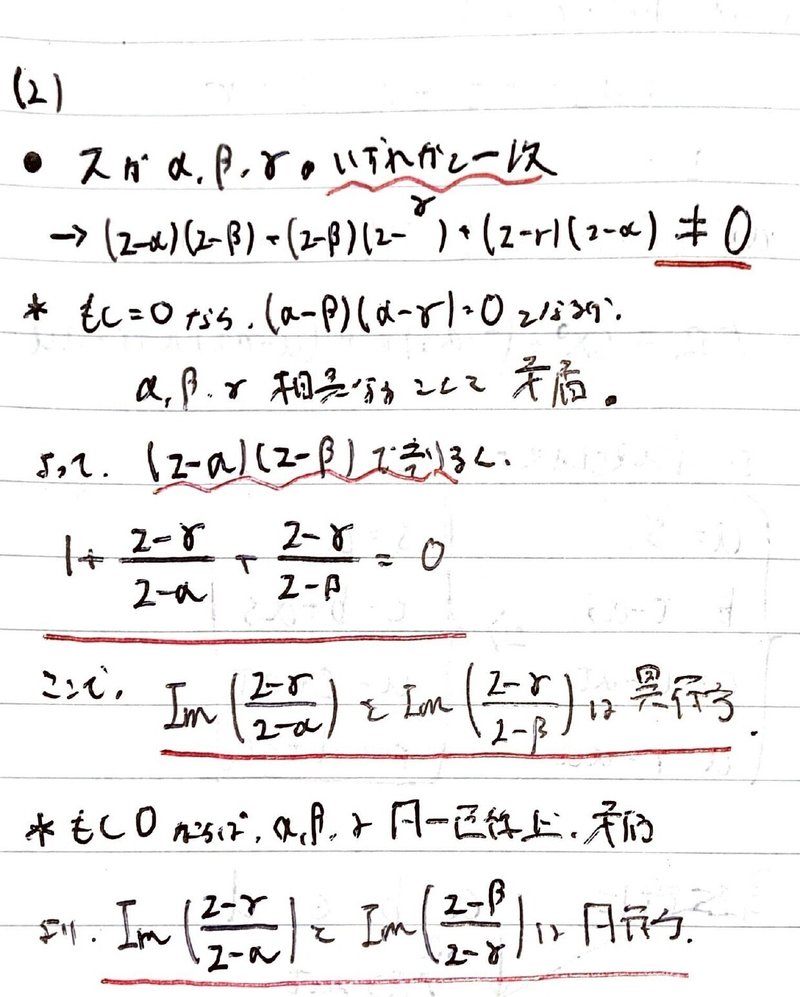 (2)
● zが α, β, γ のいずれかと一致
→ (z-α)(z-β)+(z-β)(z-γ)+(z-γ)(z-α) ≠ 0
* もし=0なら、(α-β)(α-γ)=0 となるが、
α, β, γ 相異なることに矛盾。
よって、(z-α)(z-β)で割ると、
1+ \frac{z-γ}{z-α} + \frac{z-γ}{z-β} = 0
ここで、Im(\frac{z-γ}{z-α}) と Im(\frac{z-γ}{z-β}) は異符号.
* もし0ならば、α, β, γ 同一直線上、矛盾
より、Im(\frac{z-γ}{z-α}) と Im(\frac{z-β}{z-γ}) は同符号.